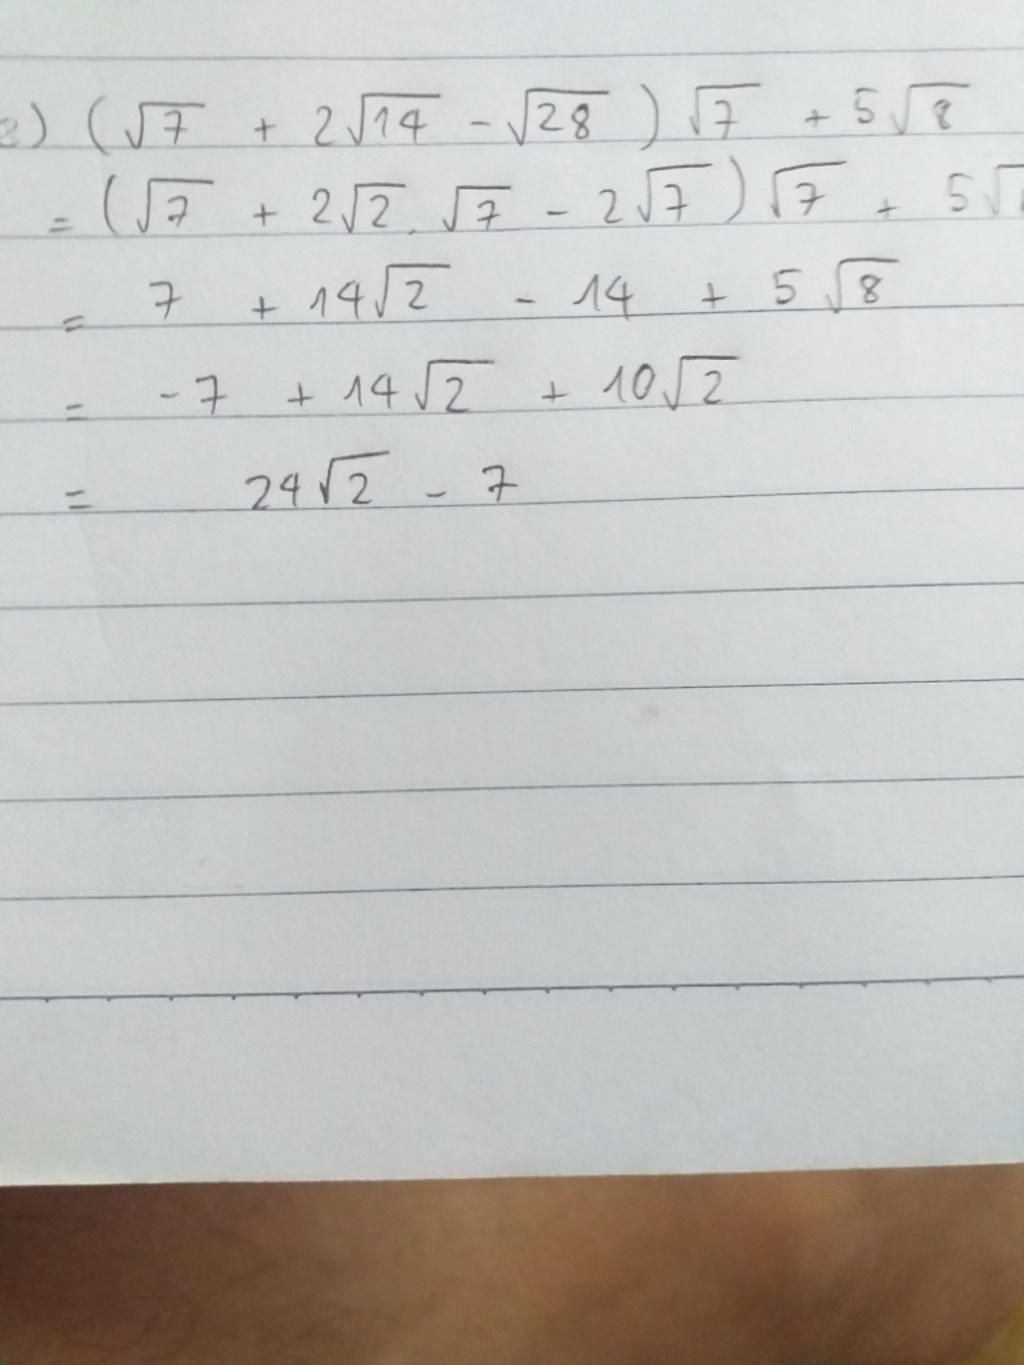 e) (√7 + 2√14 - √28) √7 + 5√8
= (√7 + 2√2 . √7 - 2√7) √7 + 5√
= 7 + 14√2 - 14 + 5√8
= -7 + 14√2 + 10√2
= 24√2 - 7